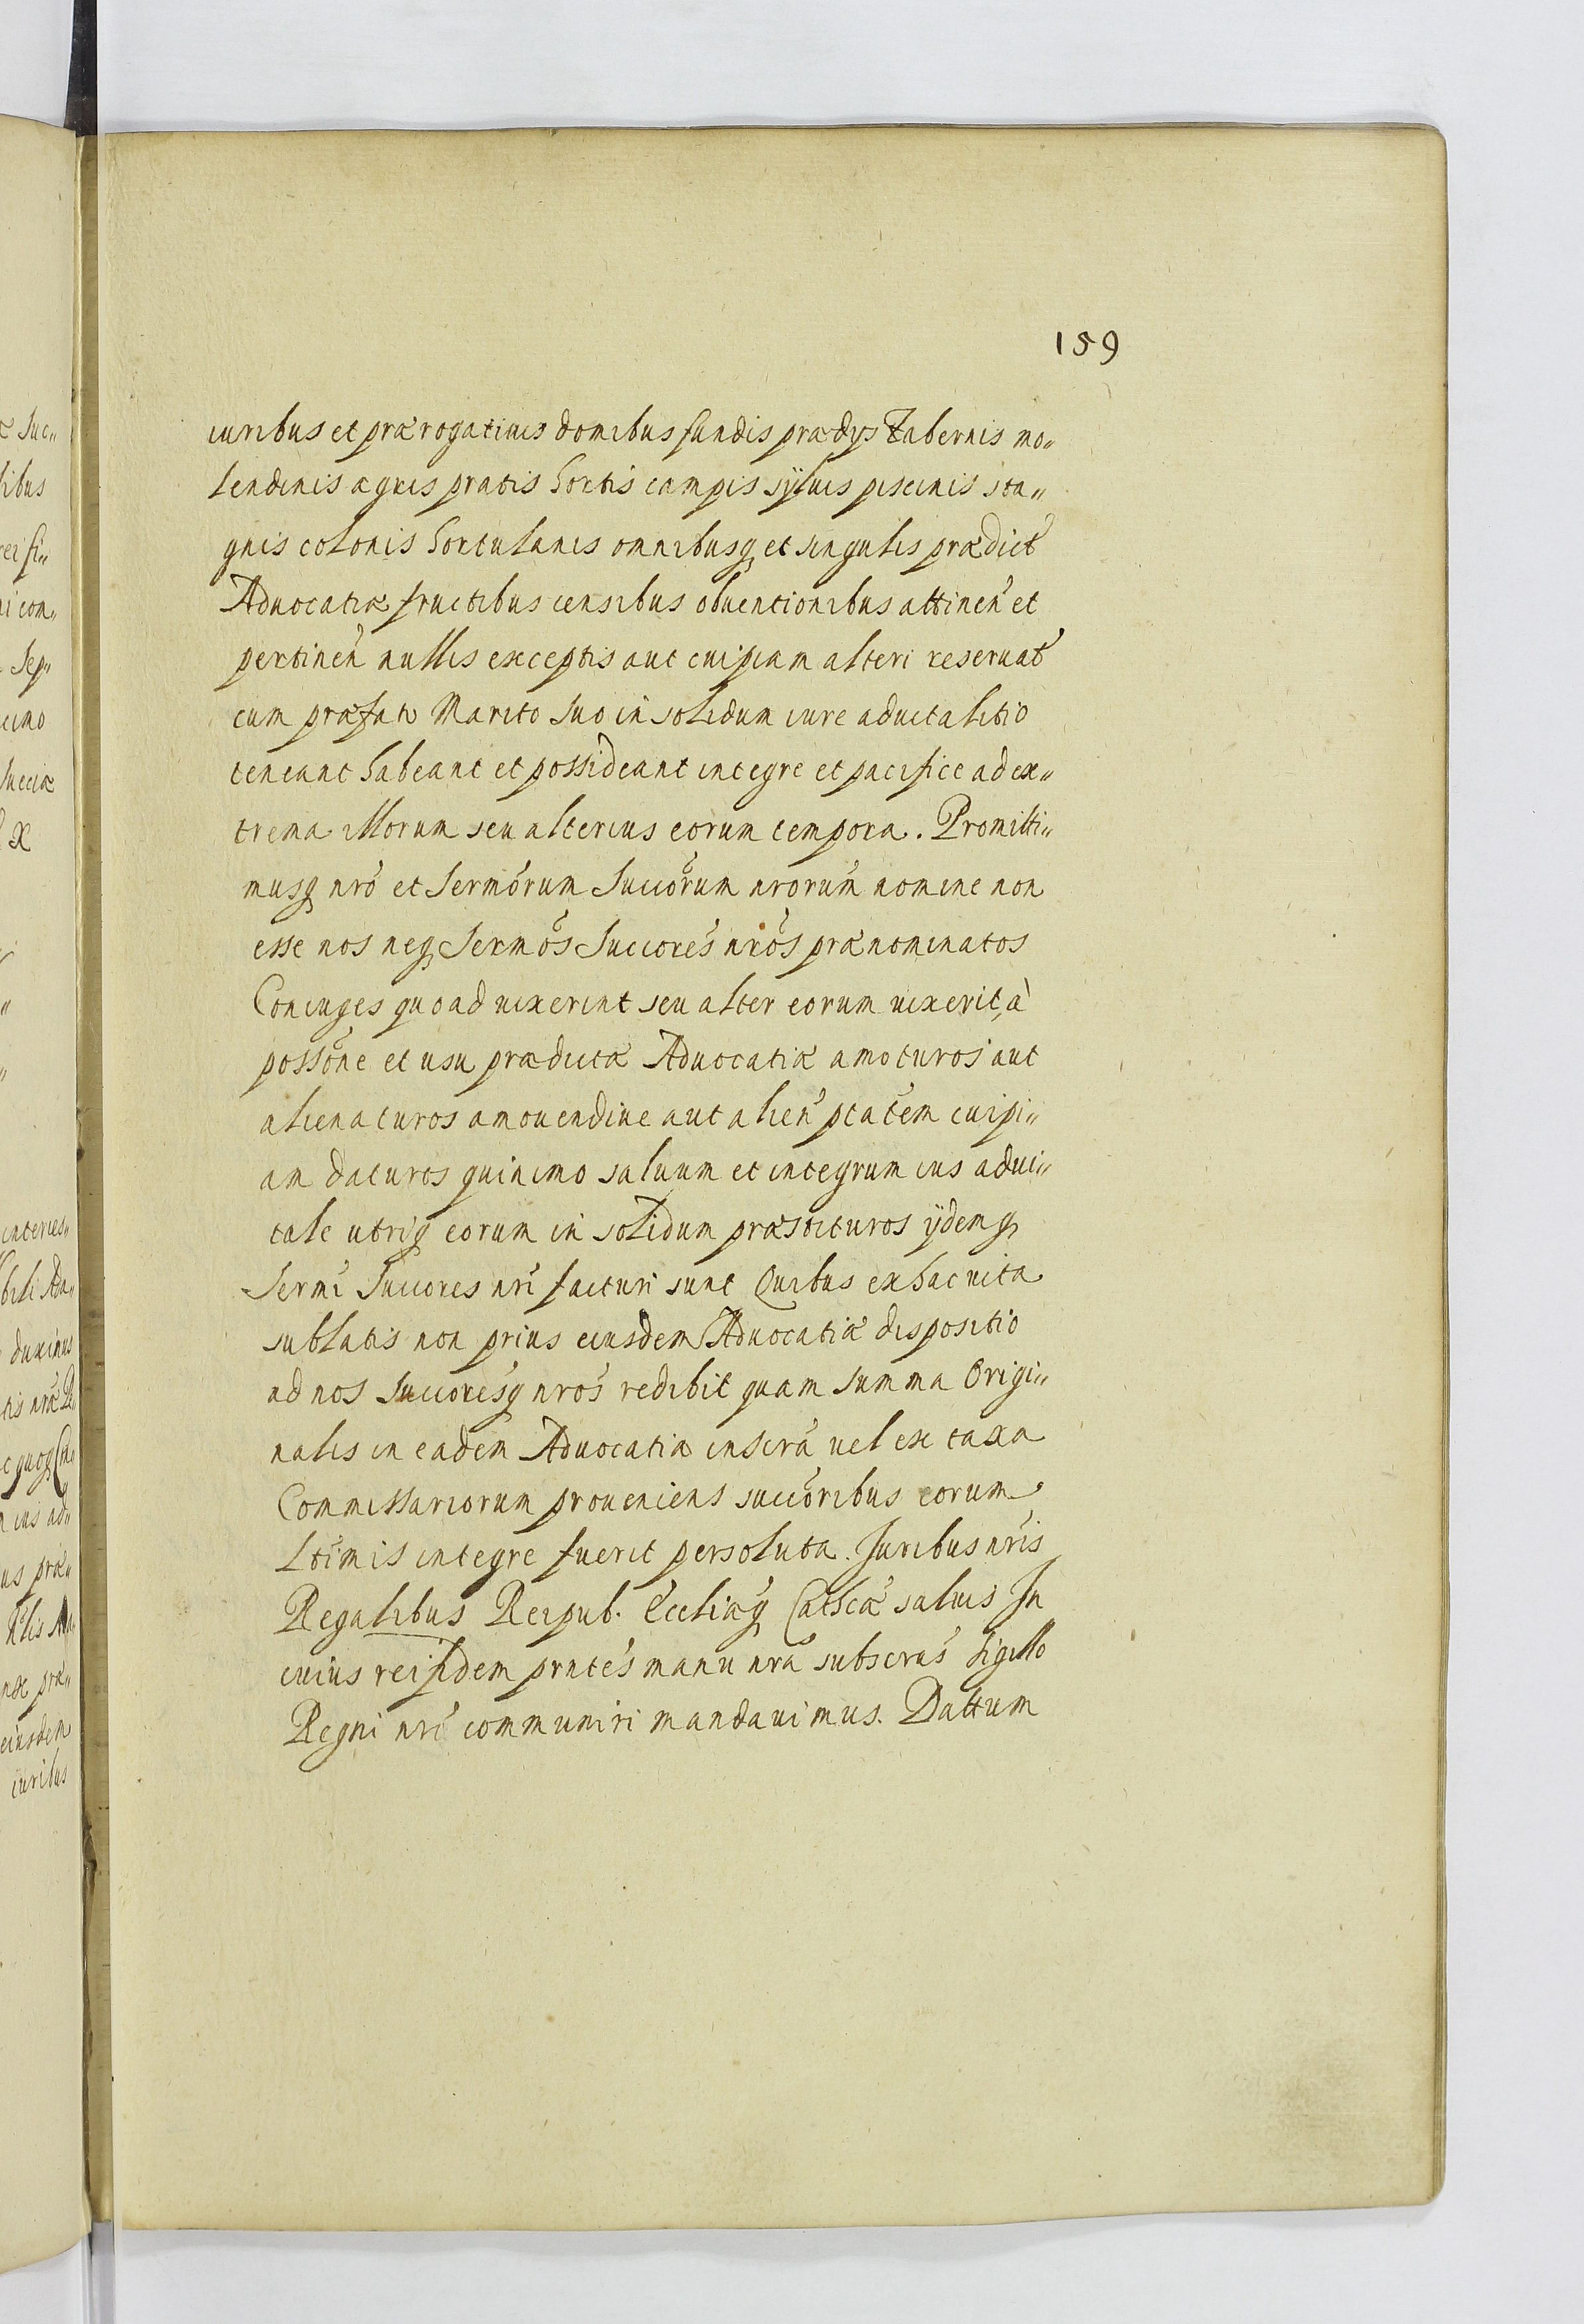 159
iuribus et prærogatiuis domibus fundis prædijs Tabernis mo„
lendinis agris pratis hortis campis syluis piscinis sta„
gnis colonis hortulanis omnibusq et singulis prædict
Aduocatiæ fructibus censibus obuentionibus attinen et
pertinen nullis exceptis aut cuipiam alteri reseruat
cum præfato Marito suo in solidum iure aduitalitio
teneant habeant et possideant integre et pacifice ad ex„
trema illorum seu alterius eorum tempora. Promitti„
musq nro et Sermorum Succorum nrorum nomine non
esse nos neq Sermos Succores nros prænominatos
Coniuges quoad uixerint seu alter eorum uixerit, à
possone et usu prædictæ Aduocatiæ amoturos aut
alienaturos amouendiue aut alien ptatem cuipi„
am daturos quinimo saluum et integrum ius adui„
tale utriq eorum in solidum præstituros ijdemq
Sermi Succores nri facturi sunt Quibus ex hac uita
sublatis non prius eiusdem Aduocatiæ dispositio
ad nos Succoresq nros redibit quam summa Origi„
nalis in eadem Aduocatia inscra uel ex taxa
Commissariorum proueniens succoribus eorum
Ltimis integre fuerit persoluta. Juribus nris
Regalibus Reipub. Eccliæq Cathcæ saluis In
cuius rei fidem prntes manu nra subscras sigillo
Regni nri communiri mandauimus. Dattum